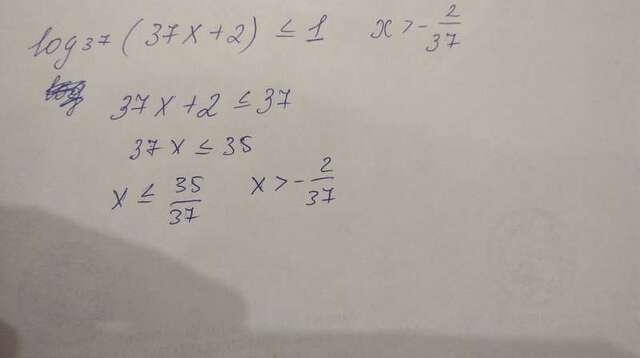 log₃₇ (37x+2) ≤ 1 x > -2/37
37x+2 ≤ 37
37x ≤ 35
x ≤ 35/37 x > -2/37